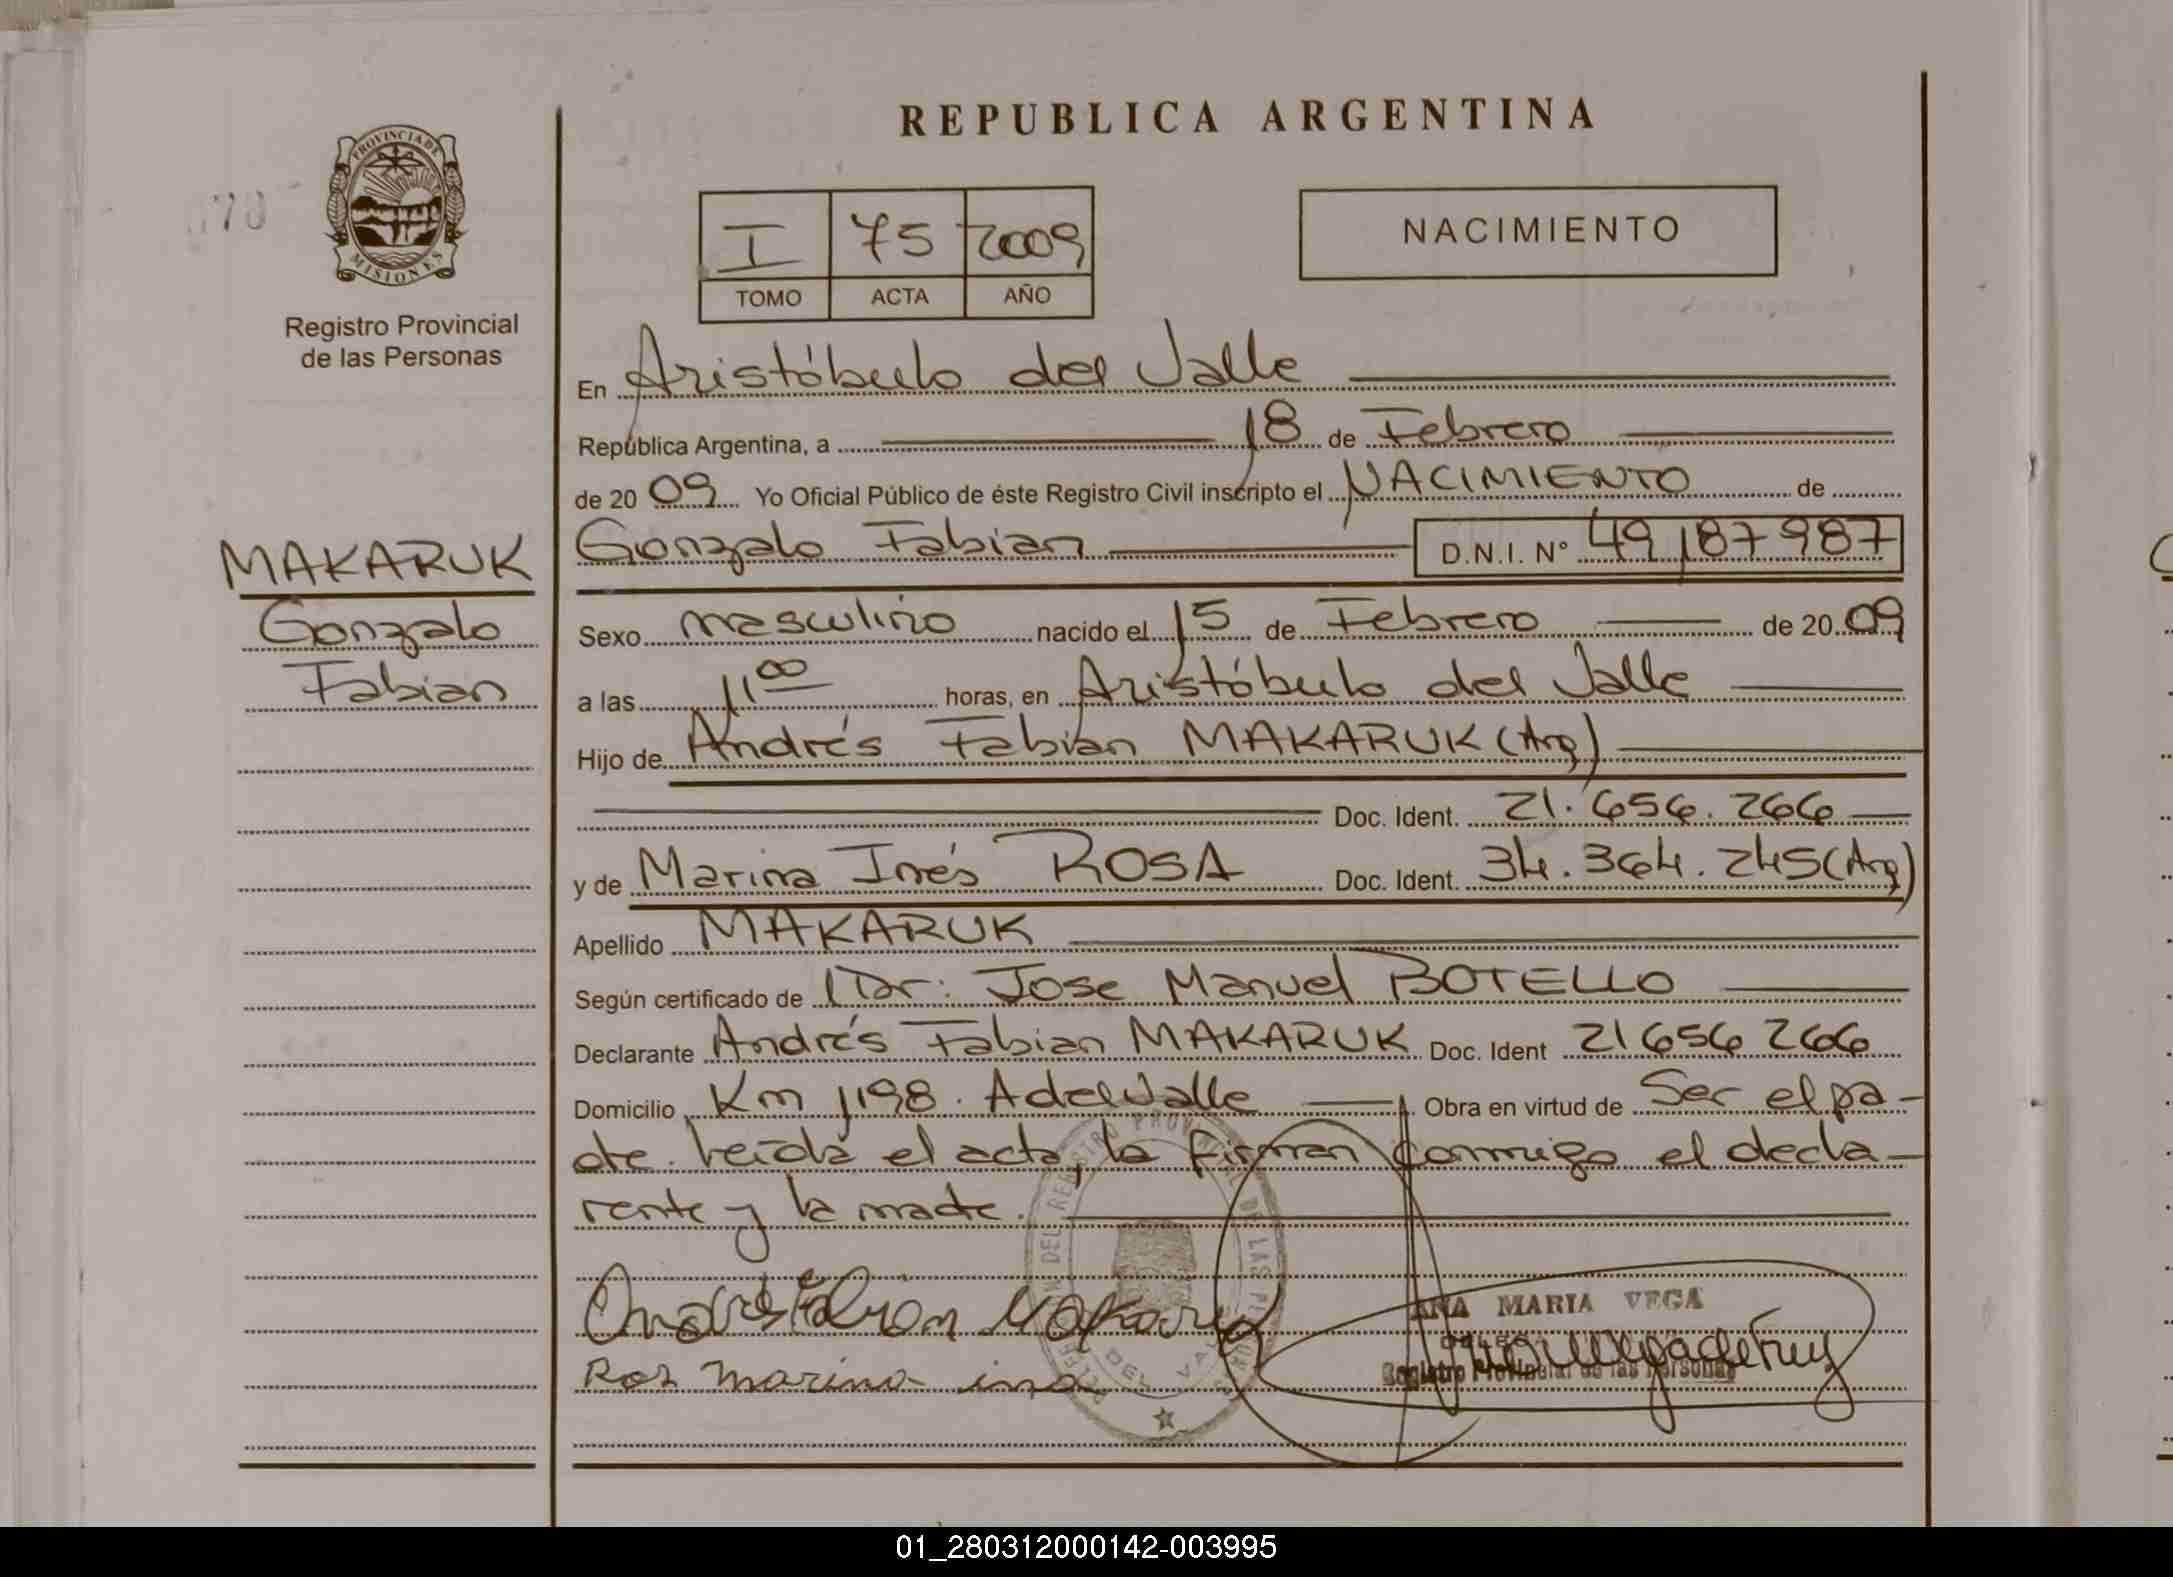 REPUBLICA ARGENTINA
PROVINCIA DE MISIONES
Registro Provincial
de las Personas
I 75 2009
TOMO ACTA AÑO
NACIMIENTO
En Aristóbulo del Valle
República Argentina, a 18 de Febrero
de 20 09 Yo Oficial Público de éste Registro Civil inscripto el NACIMIENTO de
MAKARUK
Gonzalo
Fabian
Gonzalo Fabian D.N.I. Nº 49187987
Sexo masculino nacido el 15 de Febrero de 20 09
a las 11 00 horas, en Aristóbulo del Valle
Hijo de Andrés Fabian MAKARUK (Arg)
Doc. Ident. 21.656.266
y de Marina Inés ROSA Doc. Ident. 34.364.245 (Arg)
Apellido MAKARUK
Según certificado de Dr: Jose Manuel BOTELLO
Declarante Andrés Fabian MAKARUK Doc. Ident 21656266
Domicilio Km 1198. A del Valle Obra en virtud de Ser el pa-
dre. Leída el acta, la firman conmigo el decla-
rante y la madre.
ANA MARIA VEGA
Registro Provincial de las Personas
01_280312000142-003995